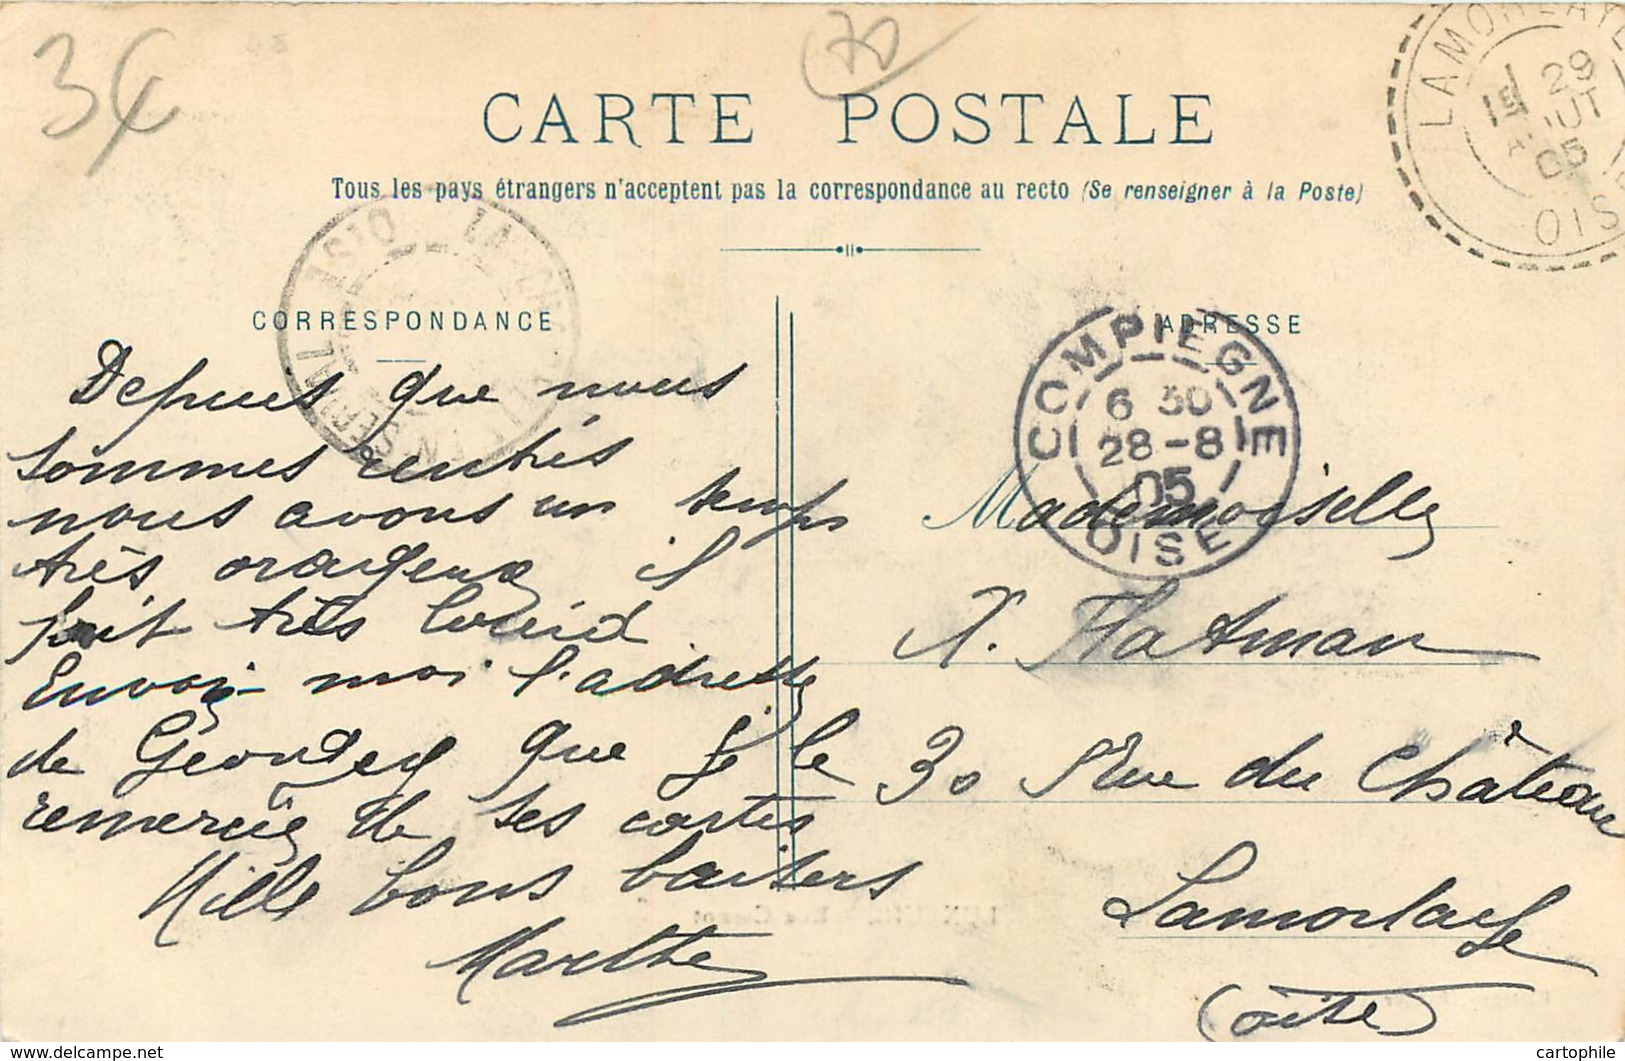 34
70
CARTE POSTALE
Tous les pays étrangers n'acceptent pas la correspondance au recto (Se renseigner à la Poste)
LAMORLAYE
29
OUT
05
OISE
CORRESPONDANCE
ADRESSE
COMPIEGNE
6 30
28-8
05
OISE
Depuis que nous
sommes rentrés
nous avons un temps
très orageux il
fait très lourd
Envoie moi l'adresse
de que je le
remercie de ses cartes
Mille bons baisers
Marthe
Mademoiselle
Y. Flatman
30 Rue du Château
Lamorlaye
(Oise)
cartophile